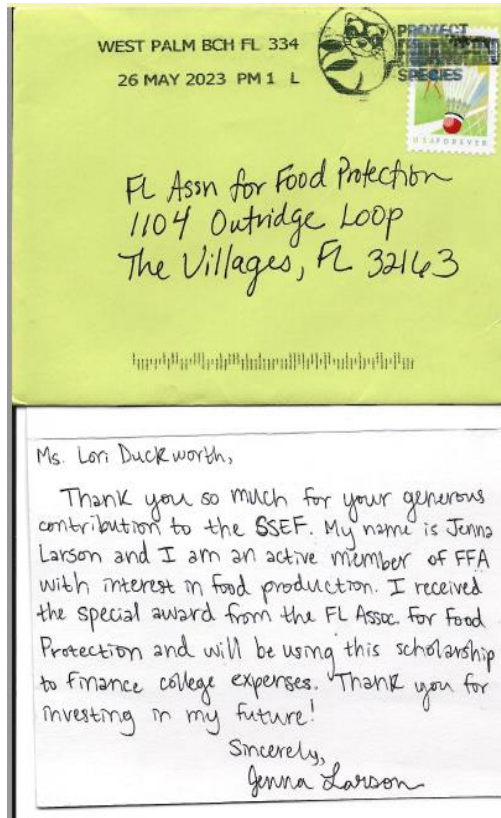 WEST PALM BCH FL 334
26 MAY 2023 PM 1 L
PROTECT
SPECIES
USA FOREVER
FL Assn for Food Protection
1104 Outridge Loop
The Villages, FL 32163
Ms. Lori Duckworth,
Thank you so much for your generous
contribution to the SSEF. My name is Jenna
Larson and I am an active member of FFA
with interest in food production. I received
the special award from the FL Assoc. for Food
Protection and will be using this scholarship
to finance college expenses. Thank you for
investing in my future!
Sincerely,
Jenna Larson